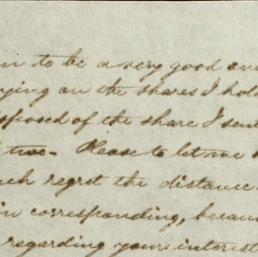 to be a very good and
on the shares I hol
sposed of the share I sent
two - Please to let me
ch regret the distance
in corresponding, becau
regarding your interest